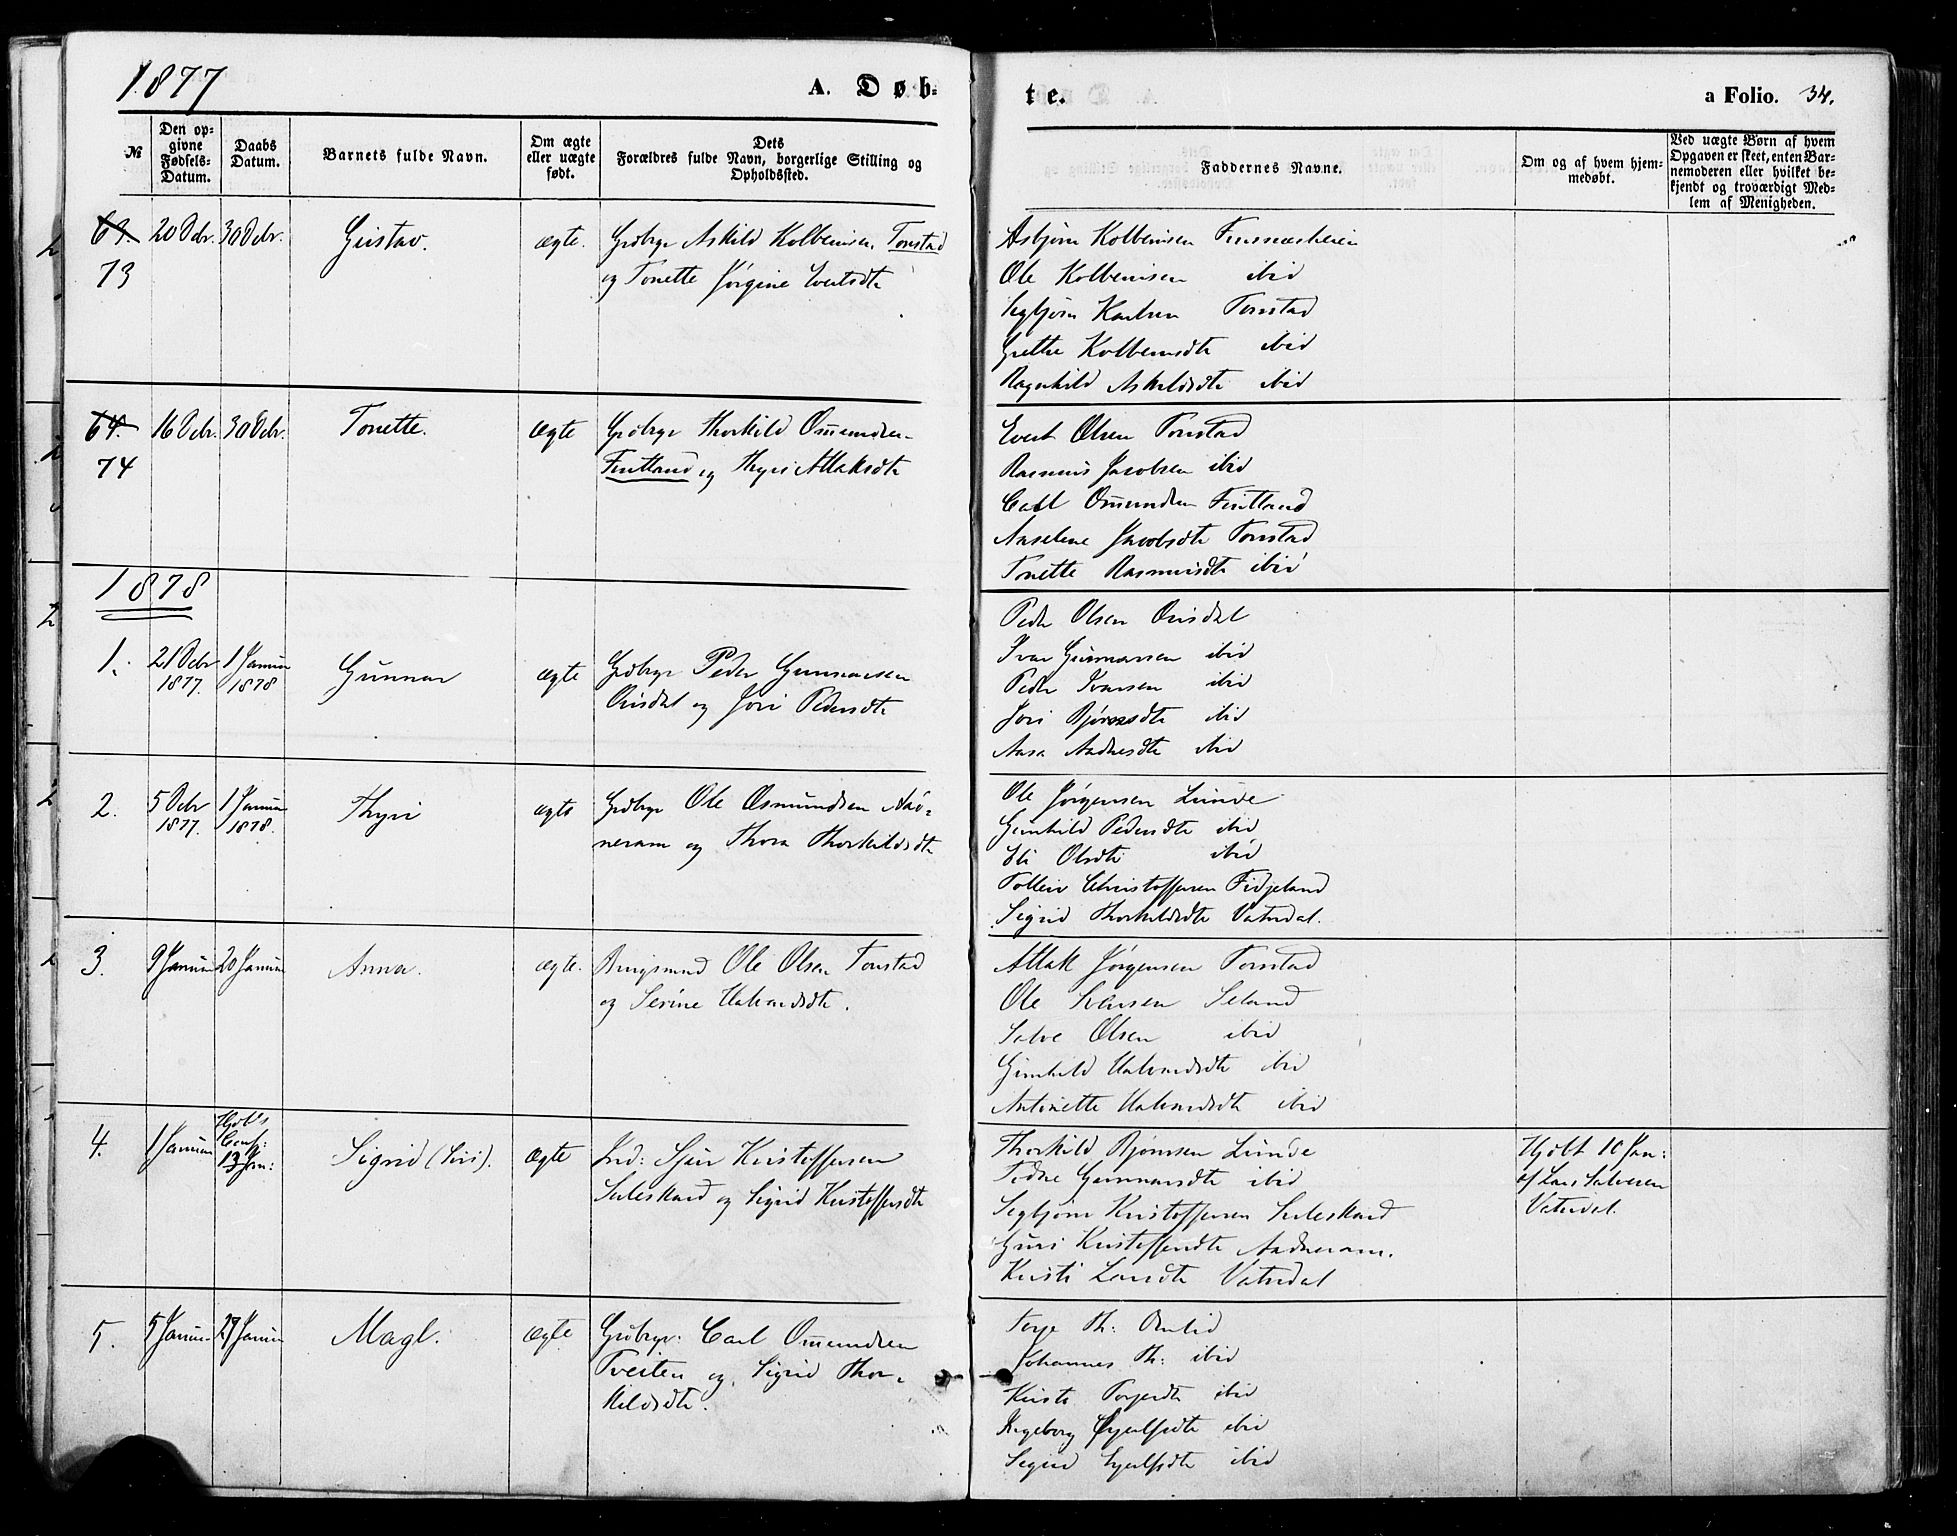 1877
A. Døb-
te.
a Folio. 34.
№
Den op-
givne
Fødsels-
Datum.
Daabs
Datum.
Barnets fulde Navn.
Om ægte
eller uægte
født.
Dets
Forældres fulde Navn, borgerlige Stilling og
Opholdssted.
Faddernes Navne.
Om og af hvem hjem-
medøbt.
Ved uægte Børn af hvem
Opgaven er skeet, enten Bar-
nemoderen eller hvilket be-
kjendt og troværdigt Med-
lem af Menigheden.
73
20 Debr.
30 Debr.
Gustav.
ægte.
Grdbrgr Askild Kolbensen Tonstad
og Tonette Jørgine Evertsdtr
Asbjørn Kolbensen
Ole Kolbensen ibid
Segbjørn Karlsen Tonstad
Grethe Kolbensdtr ibid
Ragnhild Askildsdtr ibid
64.
74
16 Debr.
30 Debr.
Tonette.
ægte
Grdbrgr Thorkild Omundsen
Fintland og Thyri Atlaksdtr
Evert Olsen Tonstad
Rasmus Jacobsen ibid
Carl Omundsen Fintland
Aaselene Jacobsdtr Tonstad
Tonette Rasmusdtr ibid
1878
1.
21 Debr
1877.
1 Januar
1878
Gunnar
ægte
Grdbrgr Peder Gunnarsen
Ousdal og Jori Pedersdtr
Peder Olsen Ousdal
Ivar Gunnarsen ibid
Peder Ivarsen ibid
Jori Bjørnsdtr ibid
Aasa Aadnesdtr ibid
2.
5 Debr
1877.
1 Januar
1878.
Thyri
ægte
Grdbrgr Ole Osmundsen Aad-
neram og Thora Thorkildsdtr
Ole Jørgensen Lunde
Gunhild Pedersdtr ibid
Eli Olsdtr ibid
Tolleiv Christoffersen Fidjeland
Sigrid Thorkildsdtr Vatnedal.
3.
9 Januar
20 Januar
Anna.
ægte.
Brugsmand Ole Olsen Tonstad
og Serine Halvardsdtr.
Atlak Jørgensen Tonstad
Ole Ivarsen Seland
Salve Olsen ibid
Gunhild Halvardsdtr ibid
Antonette Halvardsdtr ibid
4.
1 Januar
Hjdb's
Conf:
13 Jan:
Sigrid (Siri).
ægte
Ind: Sjur Kristoffersen
Suleskard og Sigrid Kristoffersdtr
Thorkild Bjørnsen Lunde
Tedne Gunnarsdtr ibid
Segbjørn Kristoffersen Suleskard
Guri Kristoffersdtr Aadneram.
Kirsti Larsdtr Vatnedal
Hjdbt 10 Jan:
af Lars Salvesen
Vatnedal.
5.
5 Januar
27 Januar
Magl.
ægte
Grdbrgr. Carl Omundsen
Tveiten og Sigrid Thor-
kildsdtr.
Terje Th: Omlid
Johannes Th: ibid
Kirsti Terjesdtr ibid
Ingeborg Eyulfsdtr ibid
Sigrid Eyulfsdtr ibid